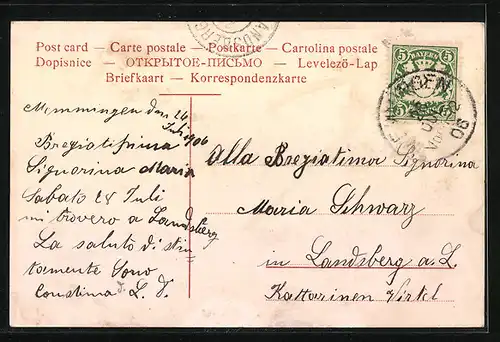 Post card – Carte postale – Postkarte – Cartolina postale
Dopisnice – ОТКРЫТОЕ-ПИСЬМО – Levelező-Lap
Briefkaart – Korrespondenzkarte
LANDSBERG
5 BAYERN 5
Memmingen den 26
Juli 1906
Bregiatissima
Signorina Maria
Sabato 28 Juli
mi trovero a Landsberg
La saluto distin
tamente Sono
L. V.
Alla Bregiatima Signorina
Maria Schwarz
in Landsberg a. L.
Kattarinen Virkel